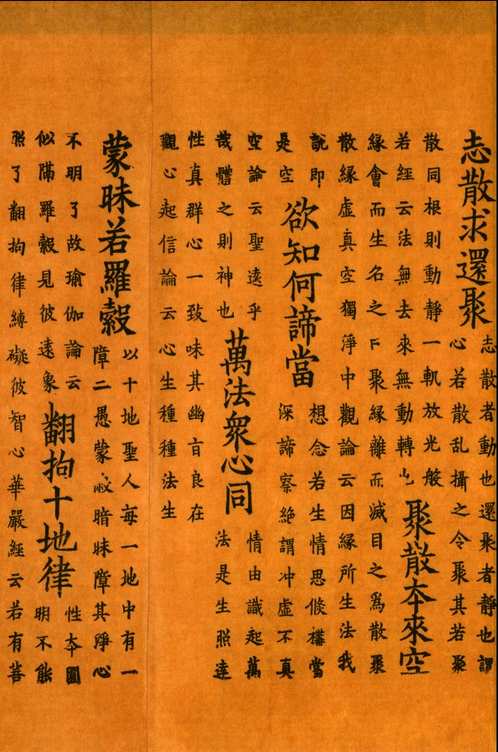 志散求還聚
志散者動也還聚者靜也謂
心若散乱攝之令聚其若聚
散同根則動靜一軌放光般
若經云法無去來無動轉也
聚散本來空
緣會而生名之曰聚緣離而滅目之爲散聚
散緣虛真空獨淨中觀論云因緣所生法我
說即
是空
欲知何諦當
想念若生情思倏擾當
深諦察絶謂冲虛不真
空論云聖遠乎
哉體之則神也
萬法衆心同
情由識起萬
法是生照達
性真群心一致味其幽旨良在
觀心起信論云心生種種法生
蒙昧若羅縠
以十地聖人每一地中有一
障二愚蒙蔽暗昧障其淨心
不明了故瑜伽論云
似隔羅縠見彼遠象
翻拘十地律
性本圓
明不能
照了翻拘律縛礙彼智心華嚴經云若有菩